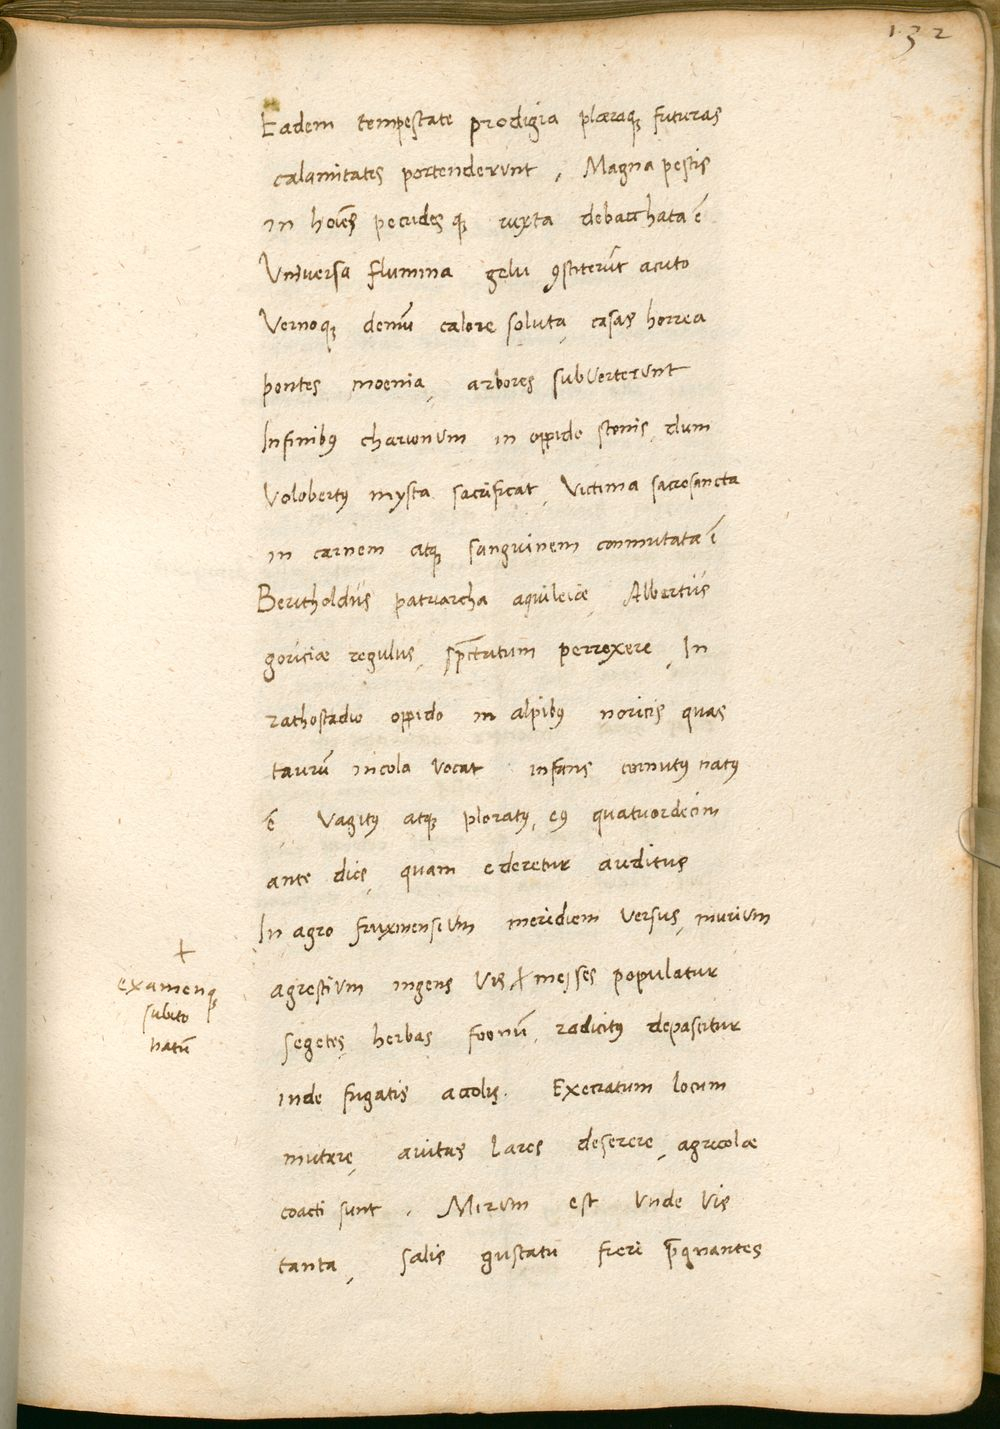 132
Eadem tempestate prodigia pleraq; futuras
calamitates portenderunt, Magna pestis
in hoīes pecudes q; iuxta debacchata ē
Vniversa flumina gelu ꝯstiterūt acuto
Vernoq; demū calore soluta, casas horrea
pontes moenia, arbores subverterunt
In finibꝰ charionum in oppido stenis, dum
Volobertꝰ mysta sacrificat, Victima sacrosancta
in carnem atq; sanguinem conmutata ē
Berctholdus patriarcha aquileiæ, Albertus
goriciæ regulus, perrexere, In
rathostadio oppido in alpibꝰ noricis quas
taurū incola vocat infans cornutꝰ natꝰ
ē Vagitꝰ atq; ploratꝰ, eꝰ quatuordecim
ante dies, quam ederetur auditus
In agro fruxinensium meridiem versus, murium
agrestium ingens vis, + messes populatur
segetes, herbas foenū, radicitꝰ depascitur
inde fugatis accolis. Execratum locum
mutare, avitas lares deserere, agricolæ
coacti sunt. Mirum est unde vis
tanta, salis gustatu fieri p̄gnantes
+
examenq;
subito
natū